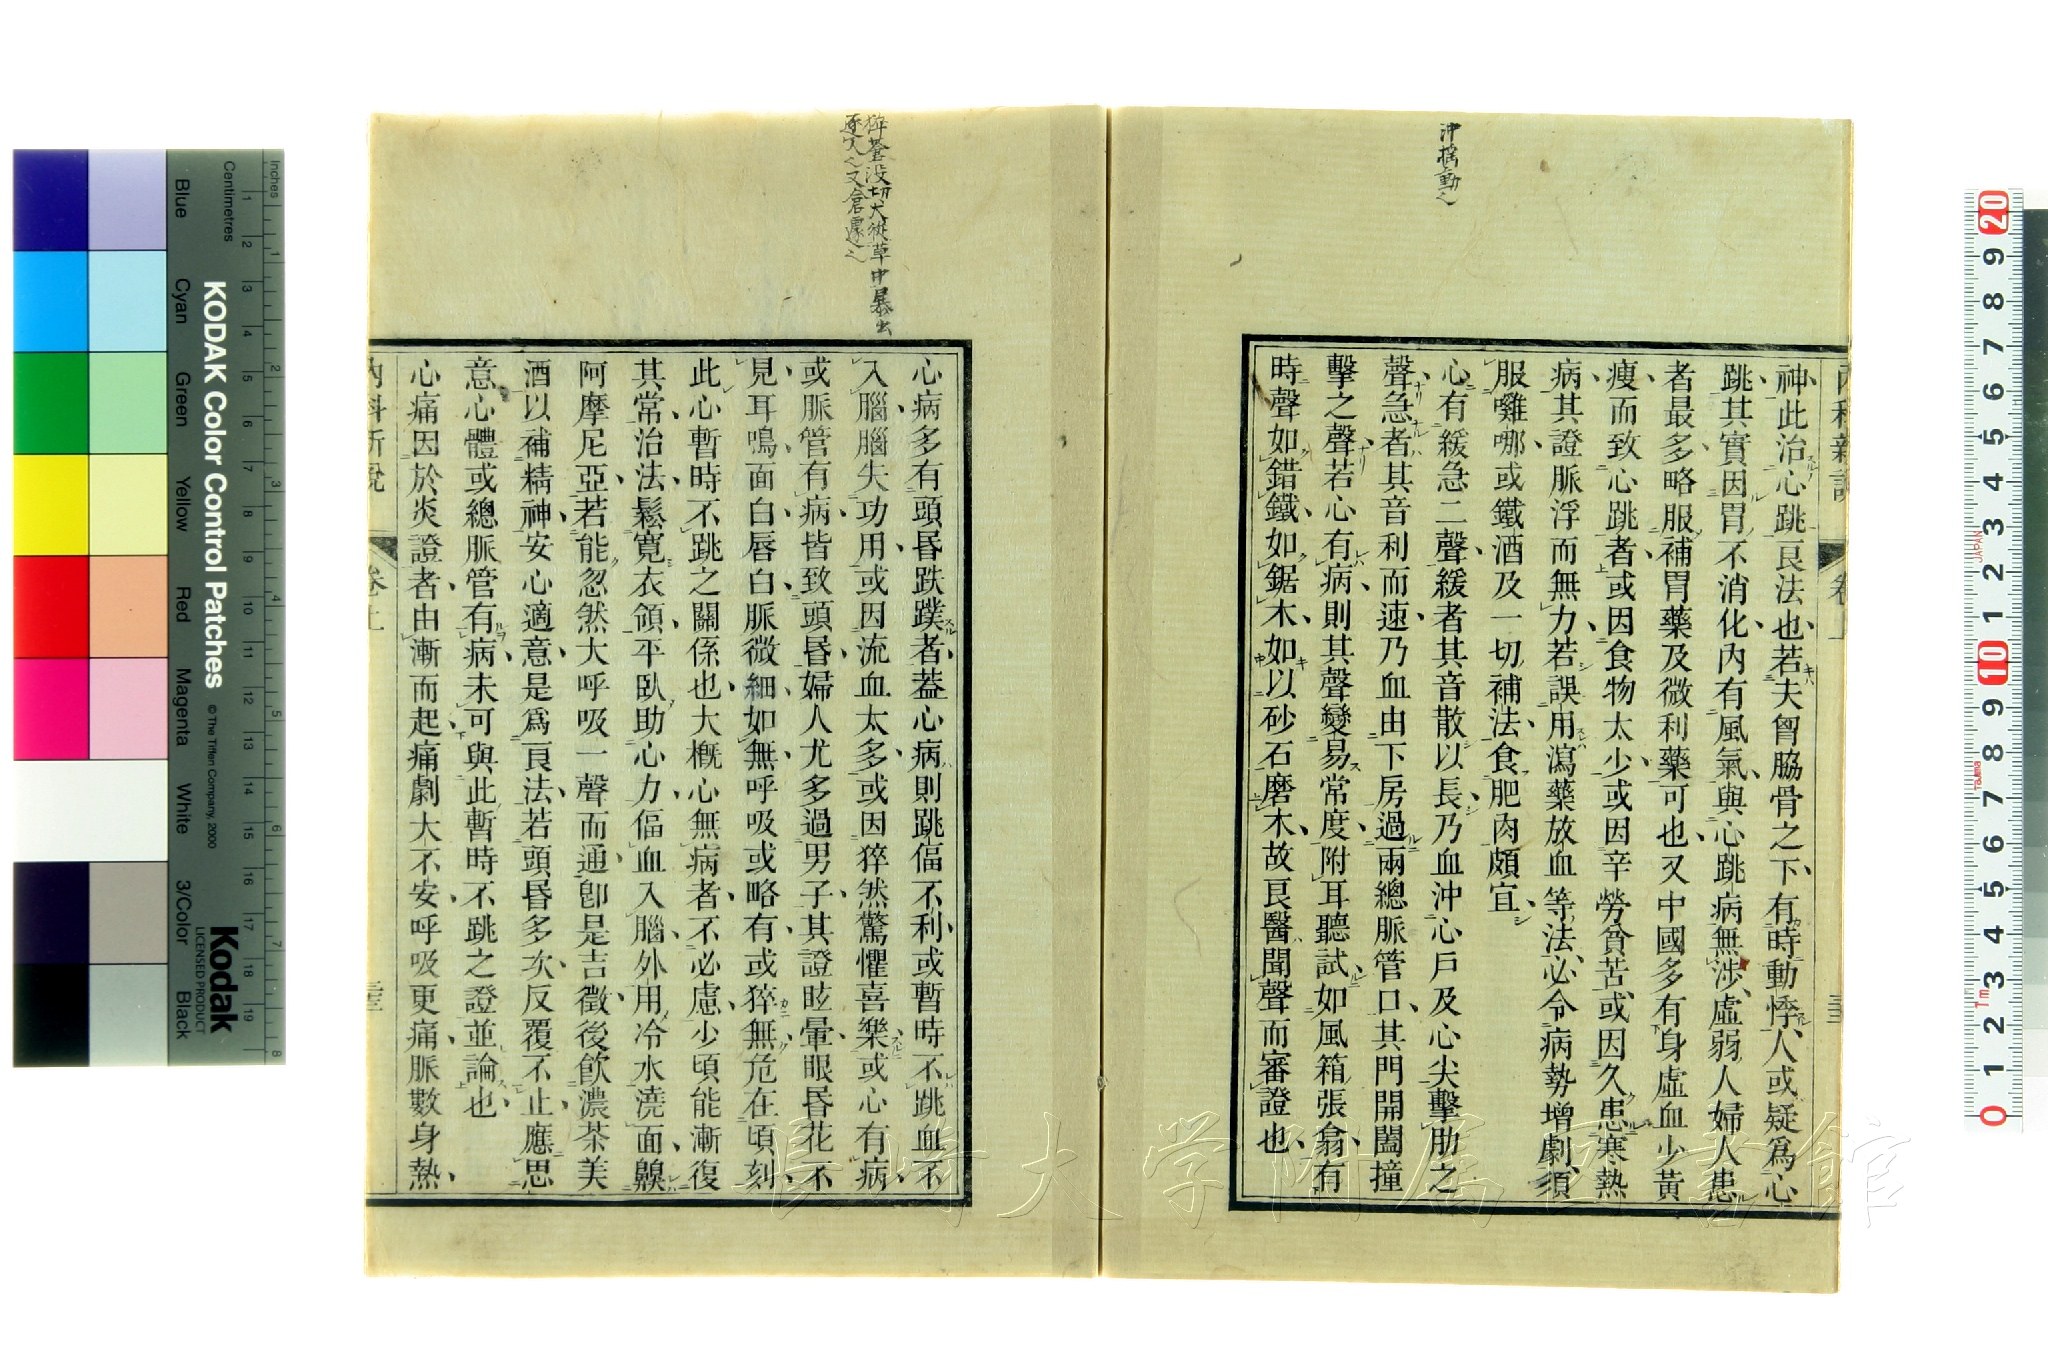 沖搖動也
內科新說
卷上
神此治心跳良法也若夫胷脇骨之下有時動悸人或疑爲心
跳其實因胃不消化內有風氣與心跳病無涉虛弱人婦人患
者最多略服補胃藥及微利藥可也又中國多有身虛血少黃
瘦而致心跳者或因食物太少或因辛勞貧苦或因久患寒熱
病其證脈浮而無力若誤用瀉藥放血等法必令病勢增劇須
服囄哪或鐵酒及一切補法食肥肉頗宜
心有緩急二聲緩者其音散以長乃血沖心戶及心尖擊肋之
聲急者其音利而速乃血由下房過兩總脈管口其門開闔撞
擊之聲若心有病則其聲變易常度附耳聽試如風箱張翕有
時聲如錯鐵如鋸木如以砂石磨木故良醫聞聲而審證也
猝蒼沒切犬從草中暴出
逐人也又倉遽也
心病多有頭昬跌蹼者葢心病則跳偪不利或暫時不跳血不
入腦腦失功用或因流血太多或因猝然驚懼喜樂或心有病
或脈管有病皆致頭昬婦人尤多過男子其證眩暈眼昬花不
見耳鳴面白唇白脈微細如無呼吸或略有或猝無危在頃刻
此心暫時不跳之關係也大概心無病者不必慮少頃能漸復
其常治法鬆寬衣領平臥助心力偪血入腦外用冷水澆面齅
阿摩尼亞若能忽然大呼吸一聲而通卽是吉徵後飮濃茶美
酒以補精神安心適意是爲良法若頭昬多次反覆不止應思
意心體或總脈管有病未可與此暫時不跳之證並論也
心痛因於炎證者由漸而起痛劇大不安呼吸更痛脈數身熱
內科新說
卷上
KODAK Color Control Patches
© The Tiffen Company, 2000
Kodak
LICENSED PRODUCT
Inches
Centimetres
Blue
Cyan
Green
Yellow
Red
Magenta
White
3/Color
Black
長崎大学附属図書館